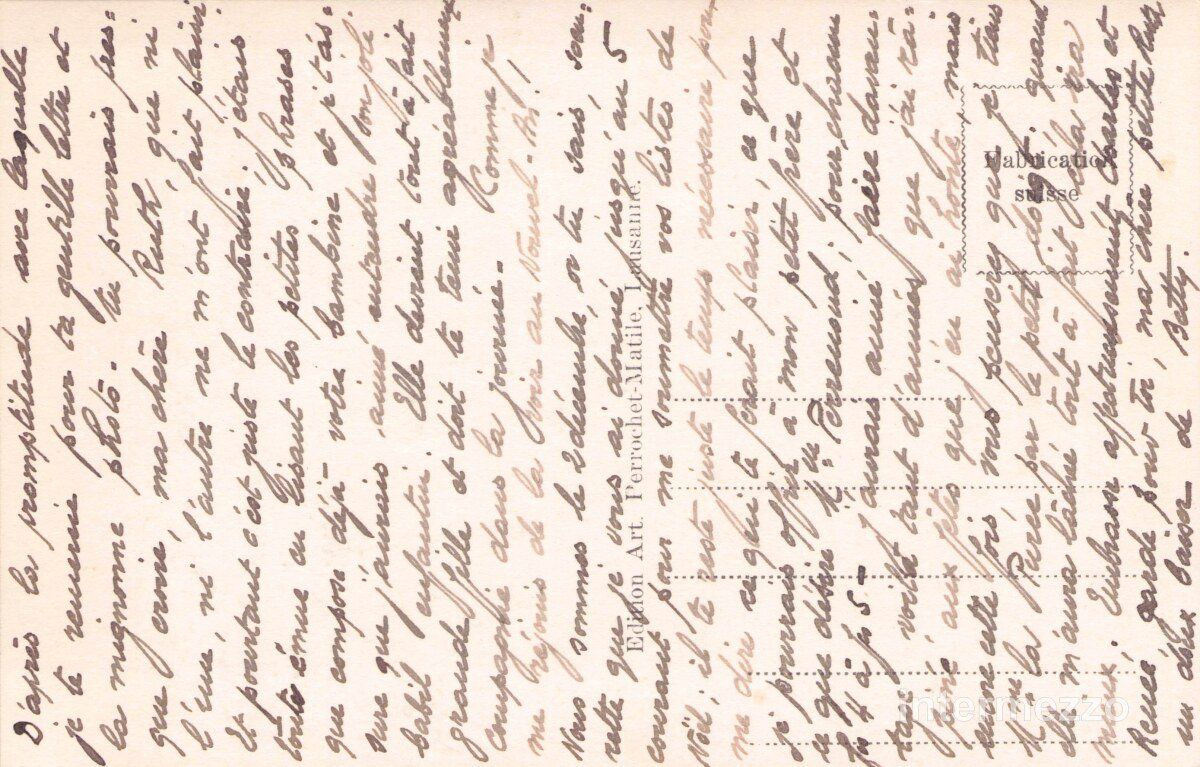 D'après la promptitude avec laquelle
je te remercie pour ta gentille lettre et
la mignonne photo. Tu pourrais pres-
que croire, ma chère Ruth, que ni
l'une, ni l'autre ne m'ont fait plaisir.
Et pourtant c'est juste le contraire, j'étais
toute émue en lisant les petites phrases
que compose déjà votre bambine et je t'as-
sure que j'aurais aimé entendre son joli
babil enfantin. Elle devient tout à fait
grande fille et doit te tenir agréablement
compagnie dans la journée. Comme je
me réjouis de la voir au Nouvel-An!
Nous sommes le 2 décembre, or tu sais sœu-
rette que je vous ai donné jusqu'au 5
Edition Art. Perrochet-Matile, Lausanne.
courant pour me soumettre vos listes de
Noël, il te reste juste le temps nécessaire pour
me dire ce qui te ferait plaisir, ce que
je pourrais offrir à mon petit frère et
ce que désire Mme Perrenoud, pour chacun
frs 4 à frs 5 - J'aurais aimé faire davan-
tage, voilà tant d'années que j'ai
aux fêtes que j'en ai honte, mais
encore cette fois, vous penserez que je tiens
Mme la Purée par le petit doigt, quand
elle m'aura lâché tout à fait, cela ira
mieux. Embrasse affectueusement Charles et
Renée, garde pour toi, ma chère petite Ruth
un doux baiser de Betty.
Fabrication
suisse
intermezzo